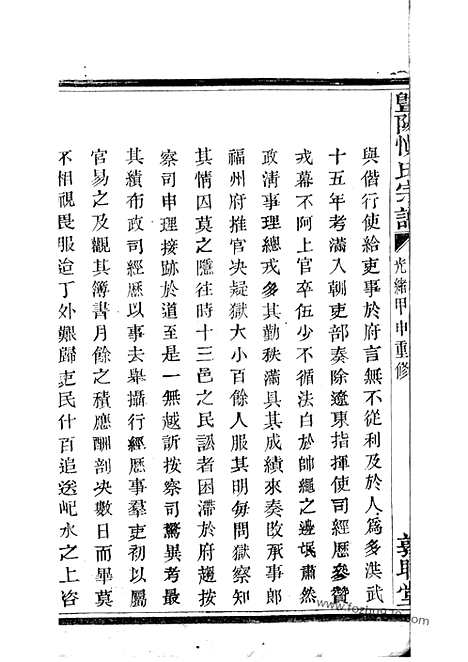 暨陽慎氏宗譜
光緒甲申重修
與偕行使給吏事於府言無不從利及於人為多洪武
十五年考滿入朝吏部奏除遼東指揮使司經歷參贊
戎幕不阿上官卒伍少不循法白於帥繩之邊境肅然
政清事理總戎多其勤秩滿具其成績來奏改承事郎
福州府推官決疑獄大小百餘人服其明每問獄察知
其情囚莫之隱往時十三邑之民訟者困滯於府趨按
察司申理接跡於道至是一無越訴按察司驚異考最
其績布政司經歷以事去舉攝行經歷事羣吏初以屬
官易之及觀其簿書月餘之積應酬剖決數日而畢莫
不相視畏服迨丁外艱歸吏民什百追送屺水之上咨